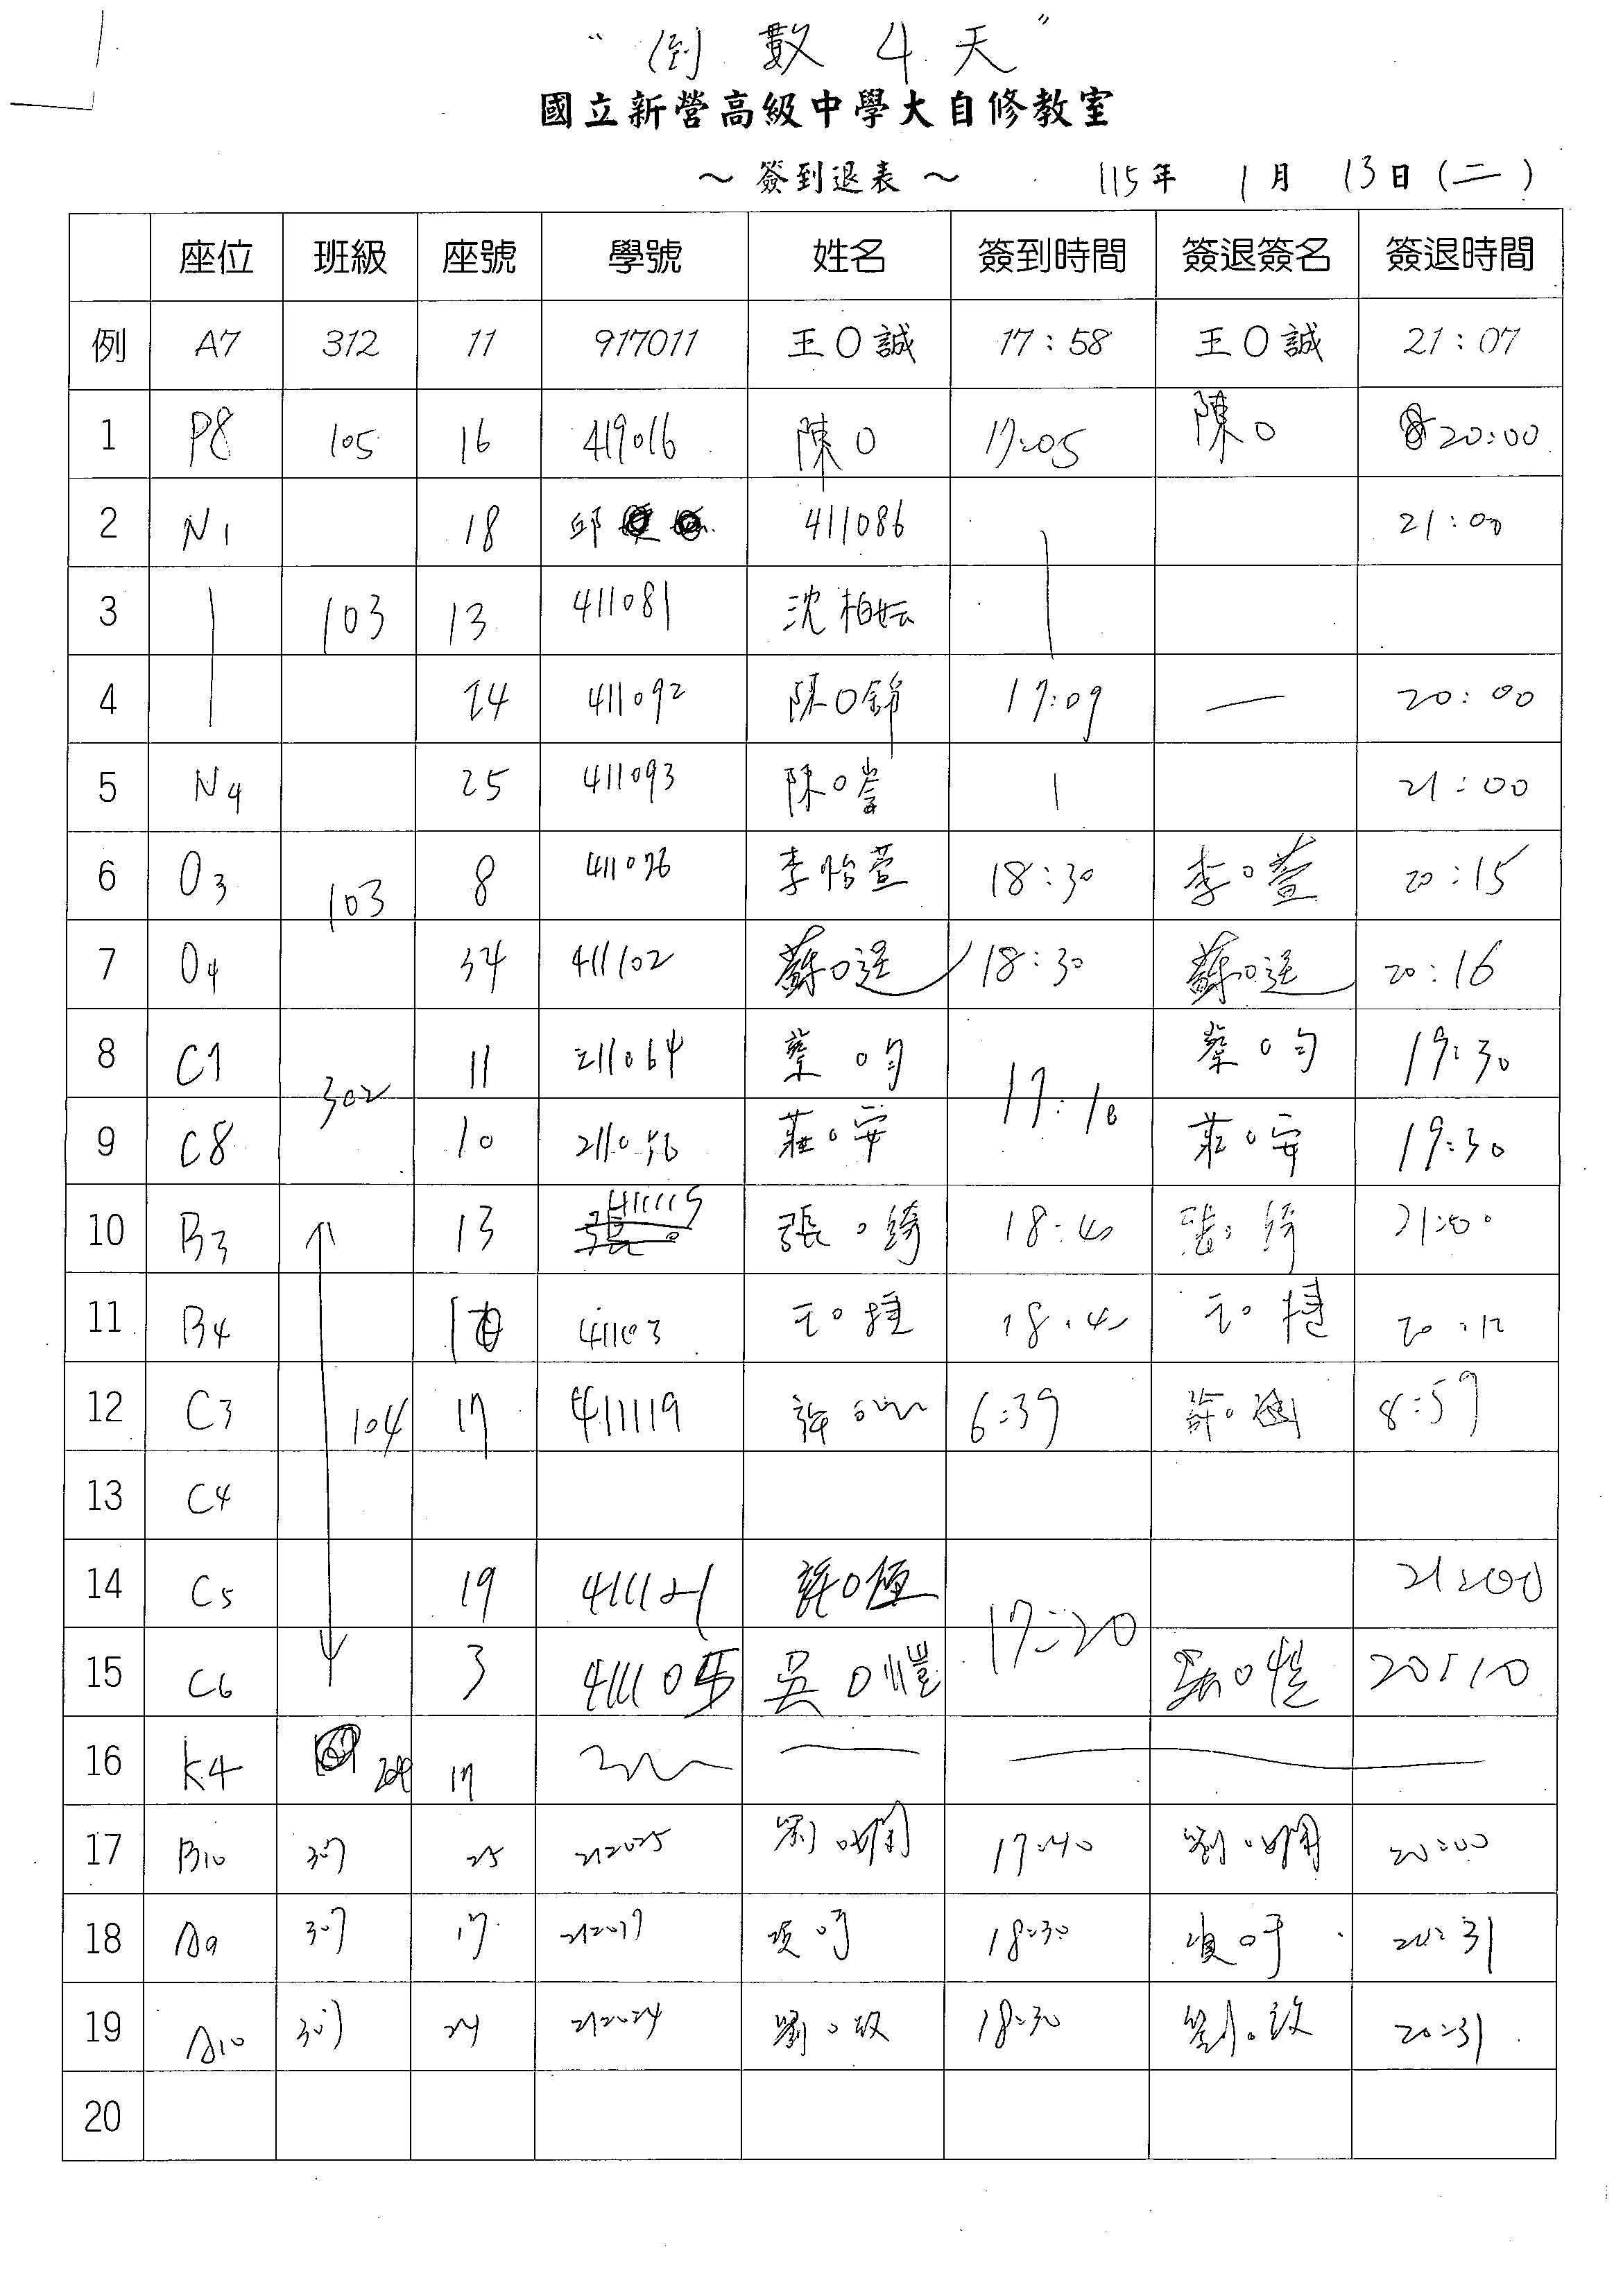 “倒數4天”
國立新營高級中學大自修教室
～簽到退表～ 115年 1月 13日(二)
座位 班級 座號 學號 姓名 簽到時間 簽退簽名 簽退時間
例 A7 312 11 917011 王O誠 17:58 王O誠 21:07
1 P8 105 16 419016 陳O 17:05 陳O 20:00
2 N1 18 邱 411086 21:00
3 103 13 411081 沈柏妘
4 24 411092 陳O錦 17:09 — 20:00
5 N4 25 411093 陳O 21:00
6 O3 103 8 411076 李怡萱 18:30 李O萱 20:15
7 O4 34 411102 蘇O 18:30 蘇O 20:16
8 C7 302 11 211064 蔡O勻 17:10 蔡O勻 19:30
9 C8 10 211056 莊O安 莊O安 19:30
10 B3 13 411115 張O綺 18:40 張O綺 21:00
11 B4 411103 王O捷 18:40 王O捷 20:12
12 C3 104 17 411119 許O 6:39 許O 8:59
13 C4
14 C5 19 411121 許O恆 17:20 21:00
15 C6 3 411105 吳O愷 吳O愷 20:10
16 K4 204 17
17 B10 307 25 212025 劉O嫻 17:40 劉O嫻 20:00
18 A9 307 17 212017 O 18:30 O 20:31
19 A10 307 24 212024 劉O 18:30 劉O 20:31
20